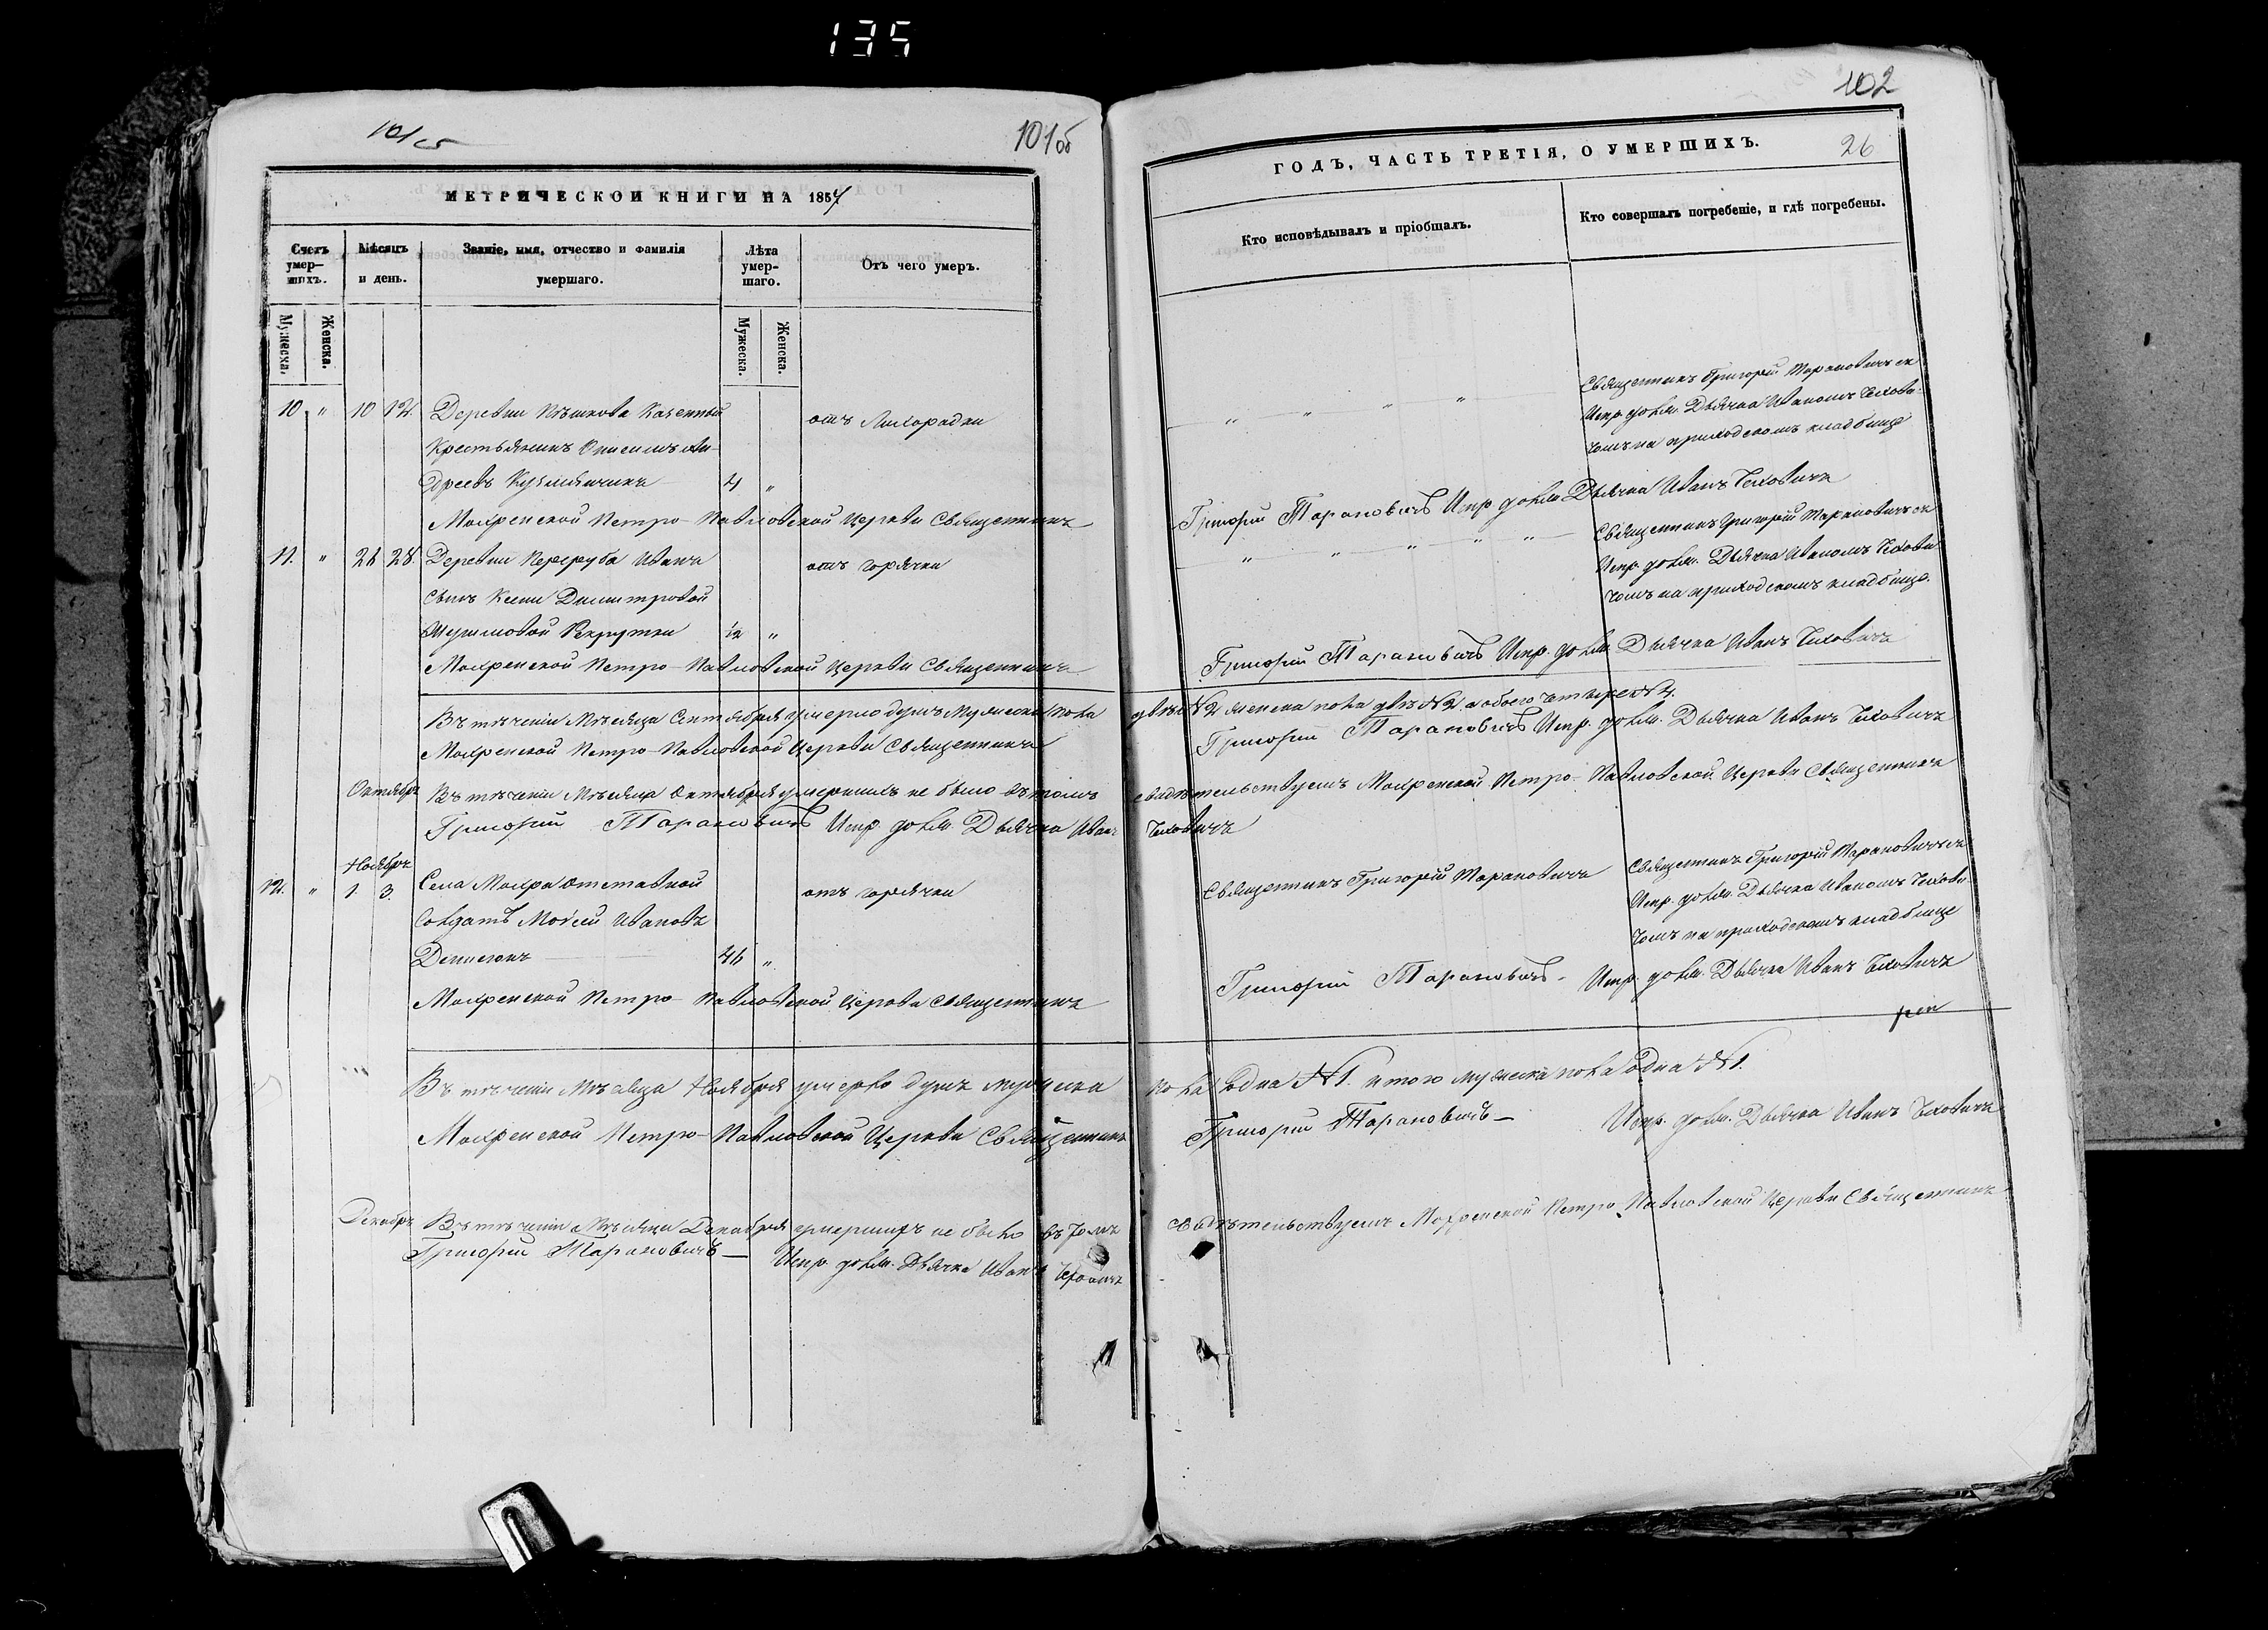 135
101об
101об
МЕТРИЧЕСКОЙ КНИГИ НА 1857
Счетъ умер-шихъ.
Мѣсяцъ и день.
Званіе, имя, отчество и фамилія умершаго.
Лѣта умер-шаго.
Отъ чего умеръ.
Мужеска.
Женска.
Мужеска.
Женска.
10 " 10 12 Деревни Казенный отъ Лихорадки
Крестьянинъ Онисимъ Ан-
дреевъ 4 "
Мохренской Петро-Павловской Церкви Священникъ
11. " 26 28. Деревни Переруба Иванъ отъ горячки
сынъ Ксени Димитровой
Рекрутки 1/2 "
Мохренской Петро-Павловской Церкви Священникъ
Въ теченіи Мѣсяца Сентября умерло душъ Мужеска пола
Мохренской Петро-Павловской Церкви Священникъ
Октябрь Въ теченіи Мѣсяца Октября умершихъ не было въ томъ
Григорій Тарановичъ Испр. долж. Дьячка Иванъ
Ноябрь
12. " 1 3. Села Мохра Отставной отъ горячки
Солдатъ Мойсей Ивановъ
Денисюкъ 46 "
Мохренской Петро-Павловской Церкви Священникъ
Въ теченіи Мѣсяца Ноября умерло душъ мужеска
Мохренской Петро-Павловской Церкви Священникъ
Декабрь Въ теченіи Мѣсяца Декабря умершихъ не было въ томъ
Григорій Тарановичъ Испр. долж. Дьячка Иванъ Чеховичъ
102
26
ГОДЪ, ЧАСТЬ ТРЕТІЯ, О УМЕРШИХЪ.
Кто исповѣдывалъ и пріобщалъ.
Кто совершалъ погребеніе, и гдѣ погребены.
" " " " Священникъ Григорій Тарановичъ съ
Испр. долж. Дьячка Иваномъ Чехови-
чомъ на приходскомъ кладбище
Григорій Тарановичъ Испр. долж. Дьячка Иванъ Чеховичъ
" " " " " Священникъ Григорій Тарановичъ съ
Испр. долж. Дьячка Иваномъ Чехови-
чомъ на приходскомъ кладбище.
Григорій Тарановичъ Испр. долж. Дьячка Иванъ Чеховичъ
двѣ №2 женска пола двѣ №2 а обоего четыре №4.
Григорій Тарановичъ Испр. долж. Дьячка Иванъ Чеховичъ
свидѣтельствуемъ Мохренской Петро-Павловской Церкви Священникъ
Чеховичъ
Священникъ Григорій Тарановичъ Священникъ Григорій Тарановичъ съ
Испр. долж. Дьячка Иваномъ Чехови-
чомъ на приходскомъ кладбище
Григорій Тарановичъ Испр. долж. Дьячка Иванъ Чеховичъ
пола одна №1. итого мужеска пола одна №1.
Григорій Тарановичъ Испр. долж. Дьячка Иванъ Чеховичъ
свидѣтельствуемъ Мохренской Петро-Павловской Церкви Священникъ